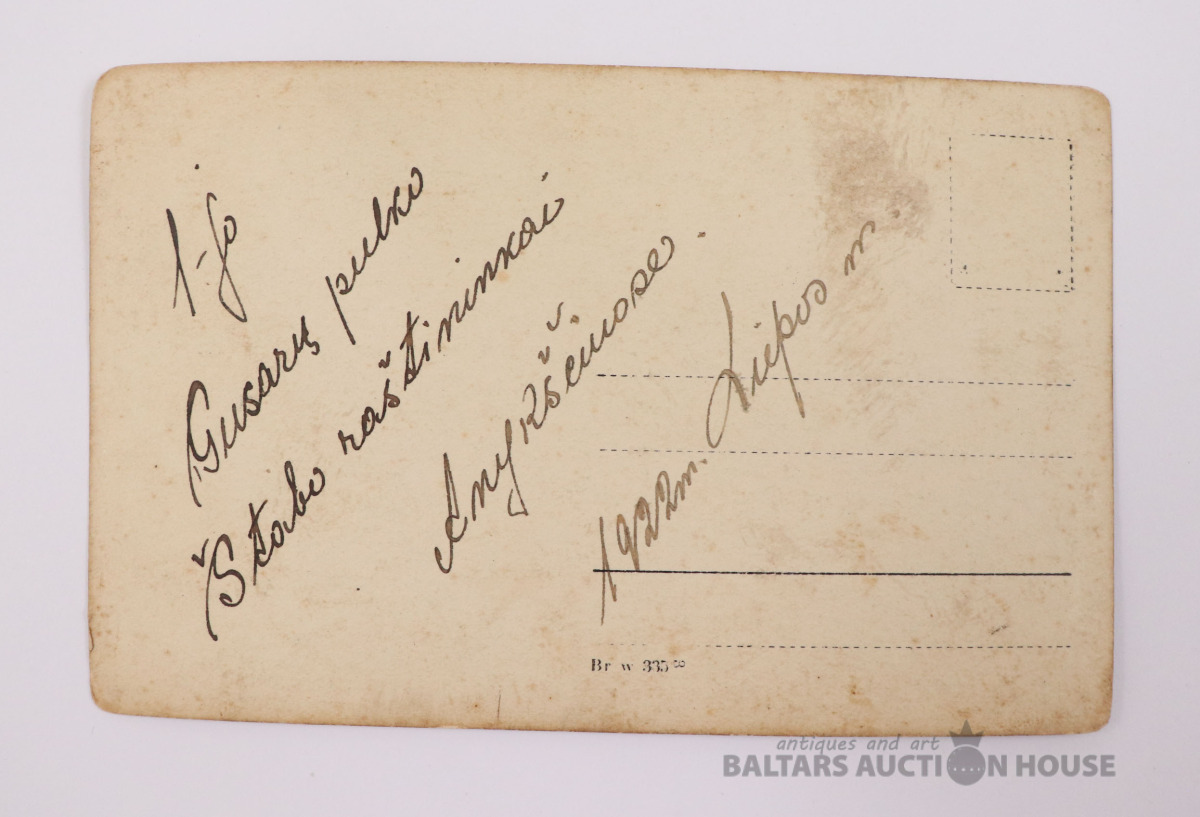 1-jo
Gusarų pulko
Štabo raštininkai
Anykščiuose.
1922 m. Liepos m.
Br w 335 8
antiques and art
BALTARS AUCTION HOUSE